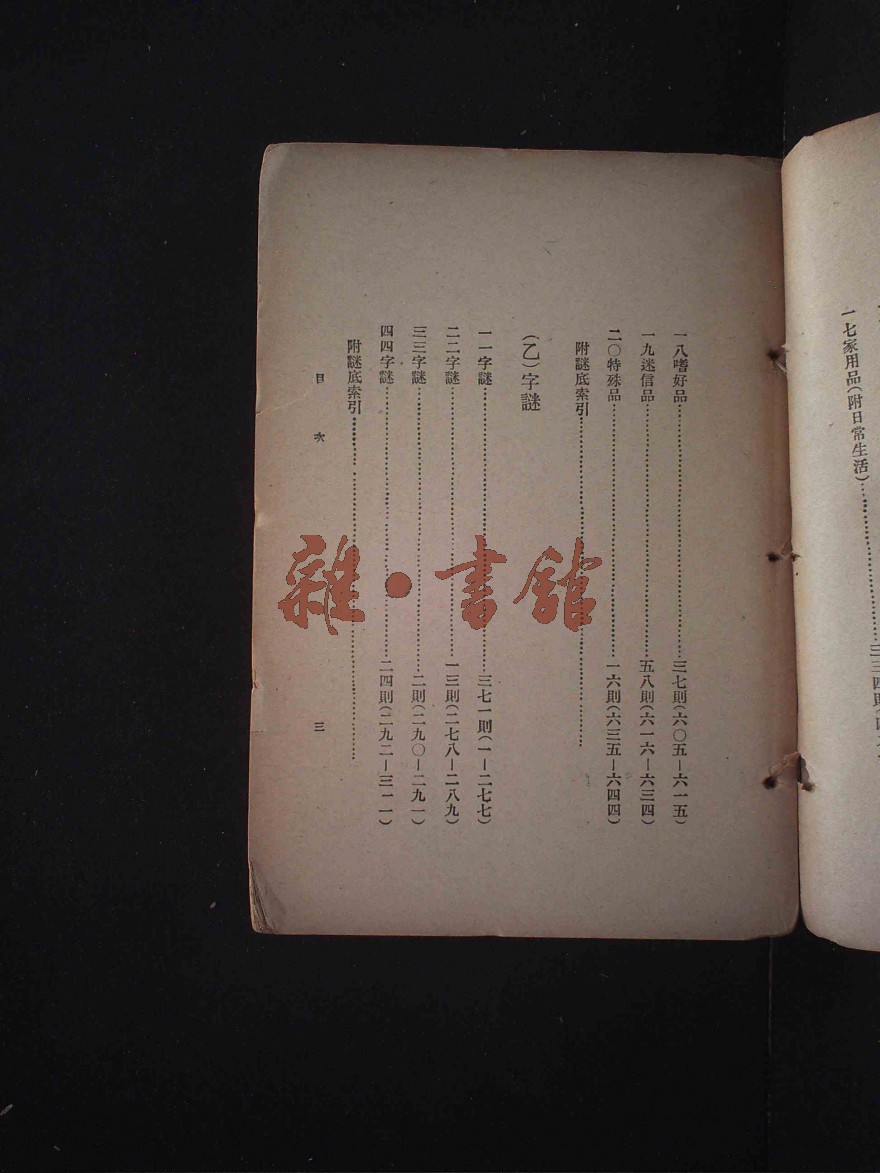 一七家用品(附日常生活)…………二三四則
一八嗜好品…………三七則(六〇五—六一五)
一九迷信品…………五八則(六一六—六三四)
二〇特殊品…………一六則(六三五—六四四)
附謎底索引…………
(乙)字謎
一一字謎…………三七一則(一—二七七)
二二字謎…………一三則(二七八—二八九)
三三字謎…………二則(二九〇—二九一)
四四字謎…………二四則(二九二—三一一)
附謎底索引…………
目次
三
雜·書館